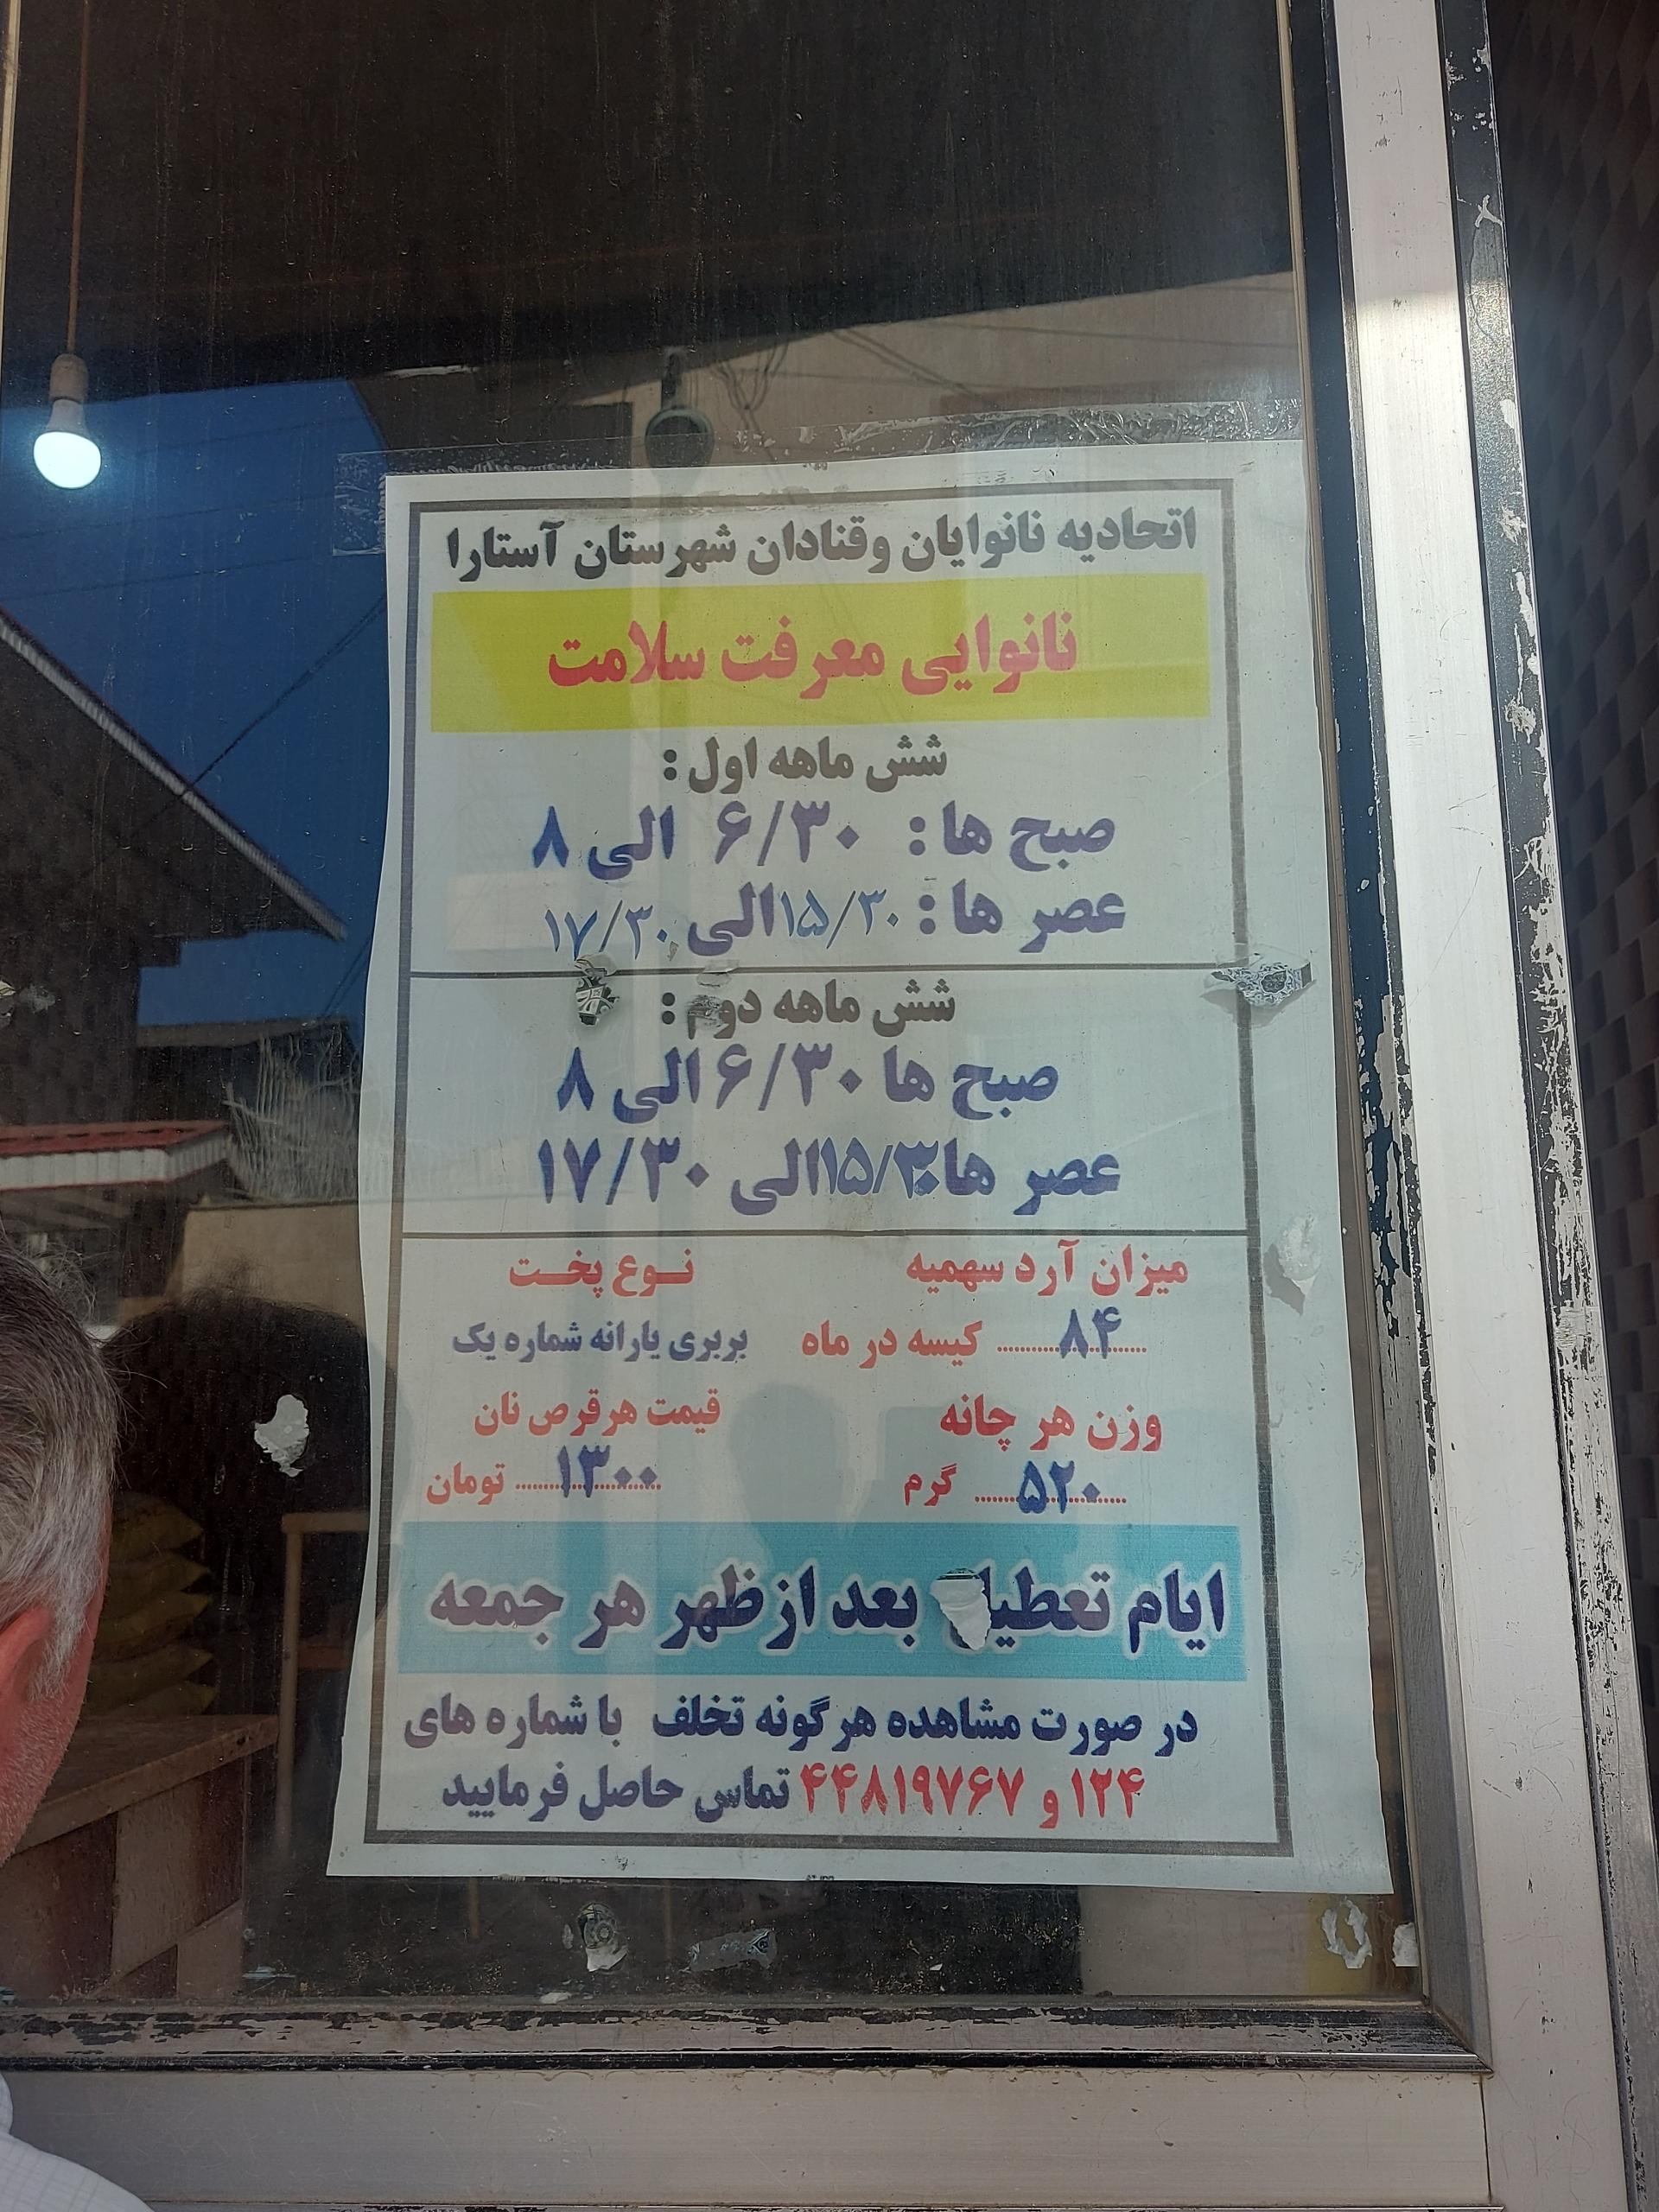 اتحادیه نانوایان وقنادان شهرستان آستارا
نانوایی معرفت سلامت
شش ماهه اول :
صبح ها : ۶/۳۰ الی ۸
عصر ها : ۱۵/۳۰ الی ۱۷/۳۰
شش ماهه دوم :
صبح ها ۶/۳۰ الی ۸
عصر ها ۱۵/۳۰ الی ۱۷/۳۰
میزان آرد سهمیه
۸۴ کیسه در ماه
نوع پخت
بربری یارانه شماره یک
وزن هر چانه
۵۲۰ گرم
قیمت هرقرص نان
۱۳۰۰ تومان
ایام تعطیل بعد ازظهر هر جمعه
در صورت مشاهده هرگونه تخلف با شماره های
۱۲۴ و ۴۴۸۱۹۷۶۷ تماس حاصل فرمایید